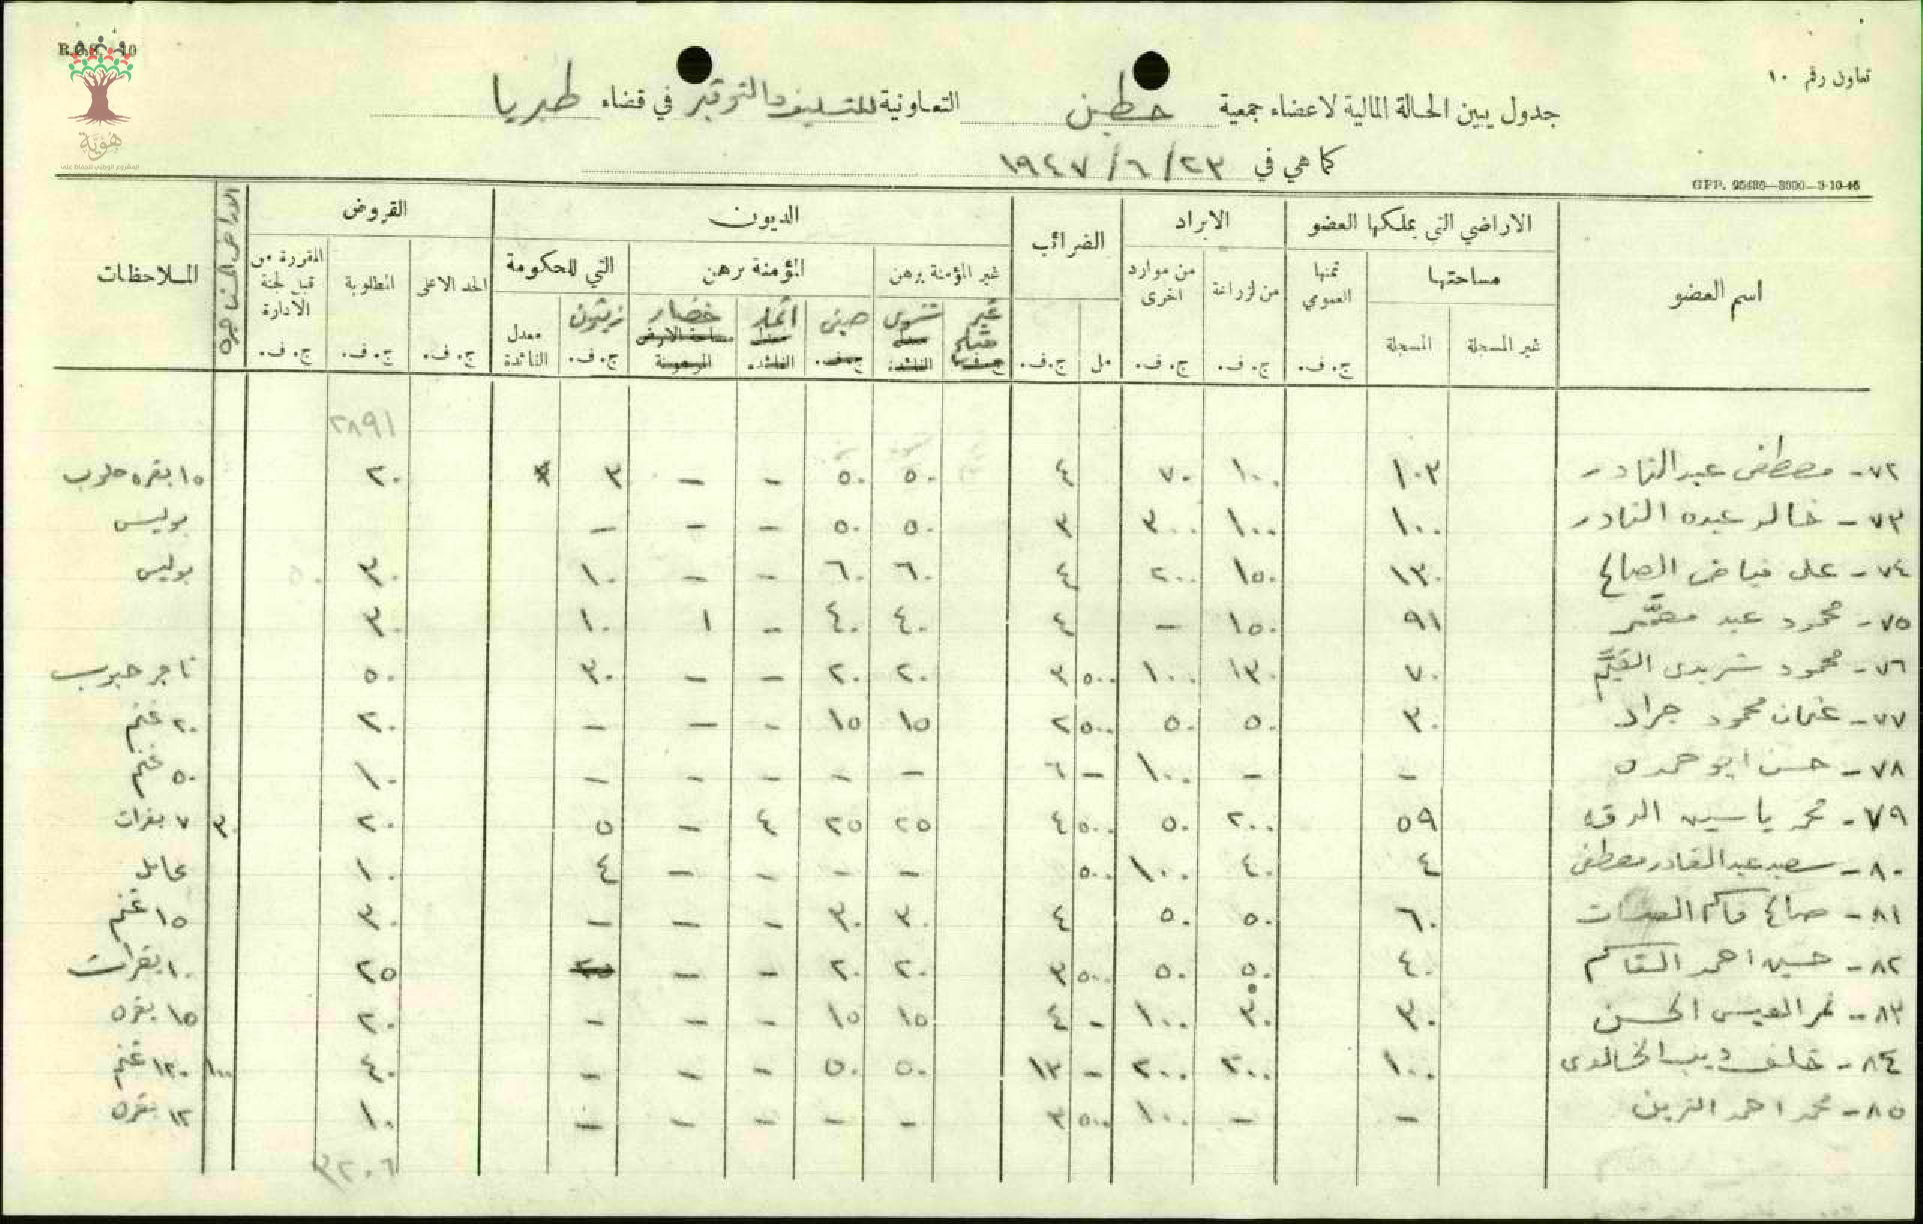 R.O.S. 10
تعاون رقم ١٠
هوية
جدول يبين الحالة المالية لاعضاء جمعية حطين التعاونية للتسليف والتوفير في قضاء طبريا
كما هي في ٢٣/٦/١٩٤٧
GPP. 25636—3000—3-10-46
اسم العضو الاراضي التي يملكها العضو الايراد الضرائب الديون القروض الاراضي المستأجره الملاحظات
مساحتها ثمنها العمومي من لزراعة من موارد اخرى غير المؤمنة برهن المؤمنة برهن التي للحكومة الحد الاعلى المطلوبة المقررة من قبل لجنة الادارة
غير المسجلة المسجلة ج. ف. ج. ف. ج. ف. مل ج. ف. غير شتوي صيفي خضار زيتون ج. ف. معدل الفائدة ج. ف. ج. ف. ج. ف.
٢٨٩١
٧٢- مصطفى عبد القادر ١٠٣ ١٠٠ ٧٠ ٤ ٥٠ ٥٠ - - ٣ ٢٠ ١٥ بقره حلوب
٧٣- خالد عبده القادر ١٠٠ ١٠٠ ٣٠٠ ٣ ٥٠ ٥٠ - - - بوليس
٧٤- علي فياض الصالح ١٣٠ ١٥٠ ٢٠٠ ٤ ٦٠ ٦٠ - - ١٠ ٣٠ ٥٠ بوليس
٧٥- محمود عبد ٩١ ١٥٠ - ٤ ٤٠ ٤٠ - ١ ١٠ ٣٠
٧٦- محمود شريدي القيّم ٧٠ ١٣٠ ١٠٠ ٥٠٠ ٣ ٢٠ ٢٠ - - ٣٠ ٥٠ تاجر حبوب
٧٧- عثمان محمود جراد ٣٠ ٥٠ ٥٠ ٥٠٠ ٢ ١٥ ١٥ - - - ٢٠ ٢٠ غنم
٧٨- حسن ابو حمده - - ١٠٠ - ٦ - - - - - ١٠ ٥٠ غنم
٧٩- محمد ياسين الرقه ٥٩ ٢٠٠ ٥٠ ٥٠٠ ٤ ٢٥ ٢٥ ٤ - ٥ ٢٠ ٣٠ ٧ بقرات
٨٠- سعيد عبد القادر مصطفى ٤ ٤٠ ١٠٠ ٥٠٠ - - - - ٤ ١٠ عامل
٨١- صالح قاسم ٦٠ ٥٠ ٥٠ ٤ ٣٠ ٣٠ - - - ٣٠ ١٥ غنم
٨٢- حسين احمد القاسم ٤٠ ٥٠ ٥٠ ٥٠٠ ٣ ٢٠ ٢٠ - - ٢٥ ١٠ بقرات
٨٣- نمر العيسى الحسن ٣٠ ٣٠ ١٠٠ - ٤ ١٥ ١٥ - - - ٢٠ ١٥ بقره
٨٤- خلف ديب الخالدي ١٠٠ ٢٠٠ ٢٠٠ - ١٣ ٥٠ ٥٠ - - - ٤٠ ١٠٠ ١٢٠ غنم
٨٥- محمد احمد الزين - - ١٠٠ ٥٠٠ ٣ - - - - - ١٠ ١٢ بقره
٣٢٠٦